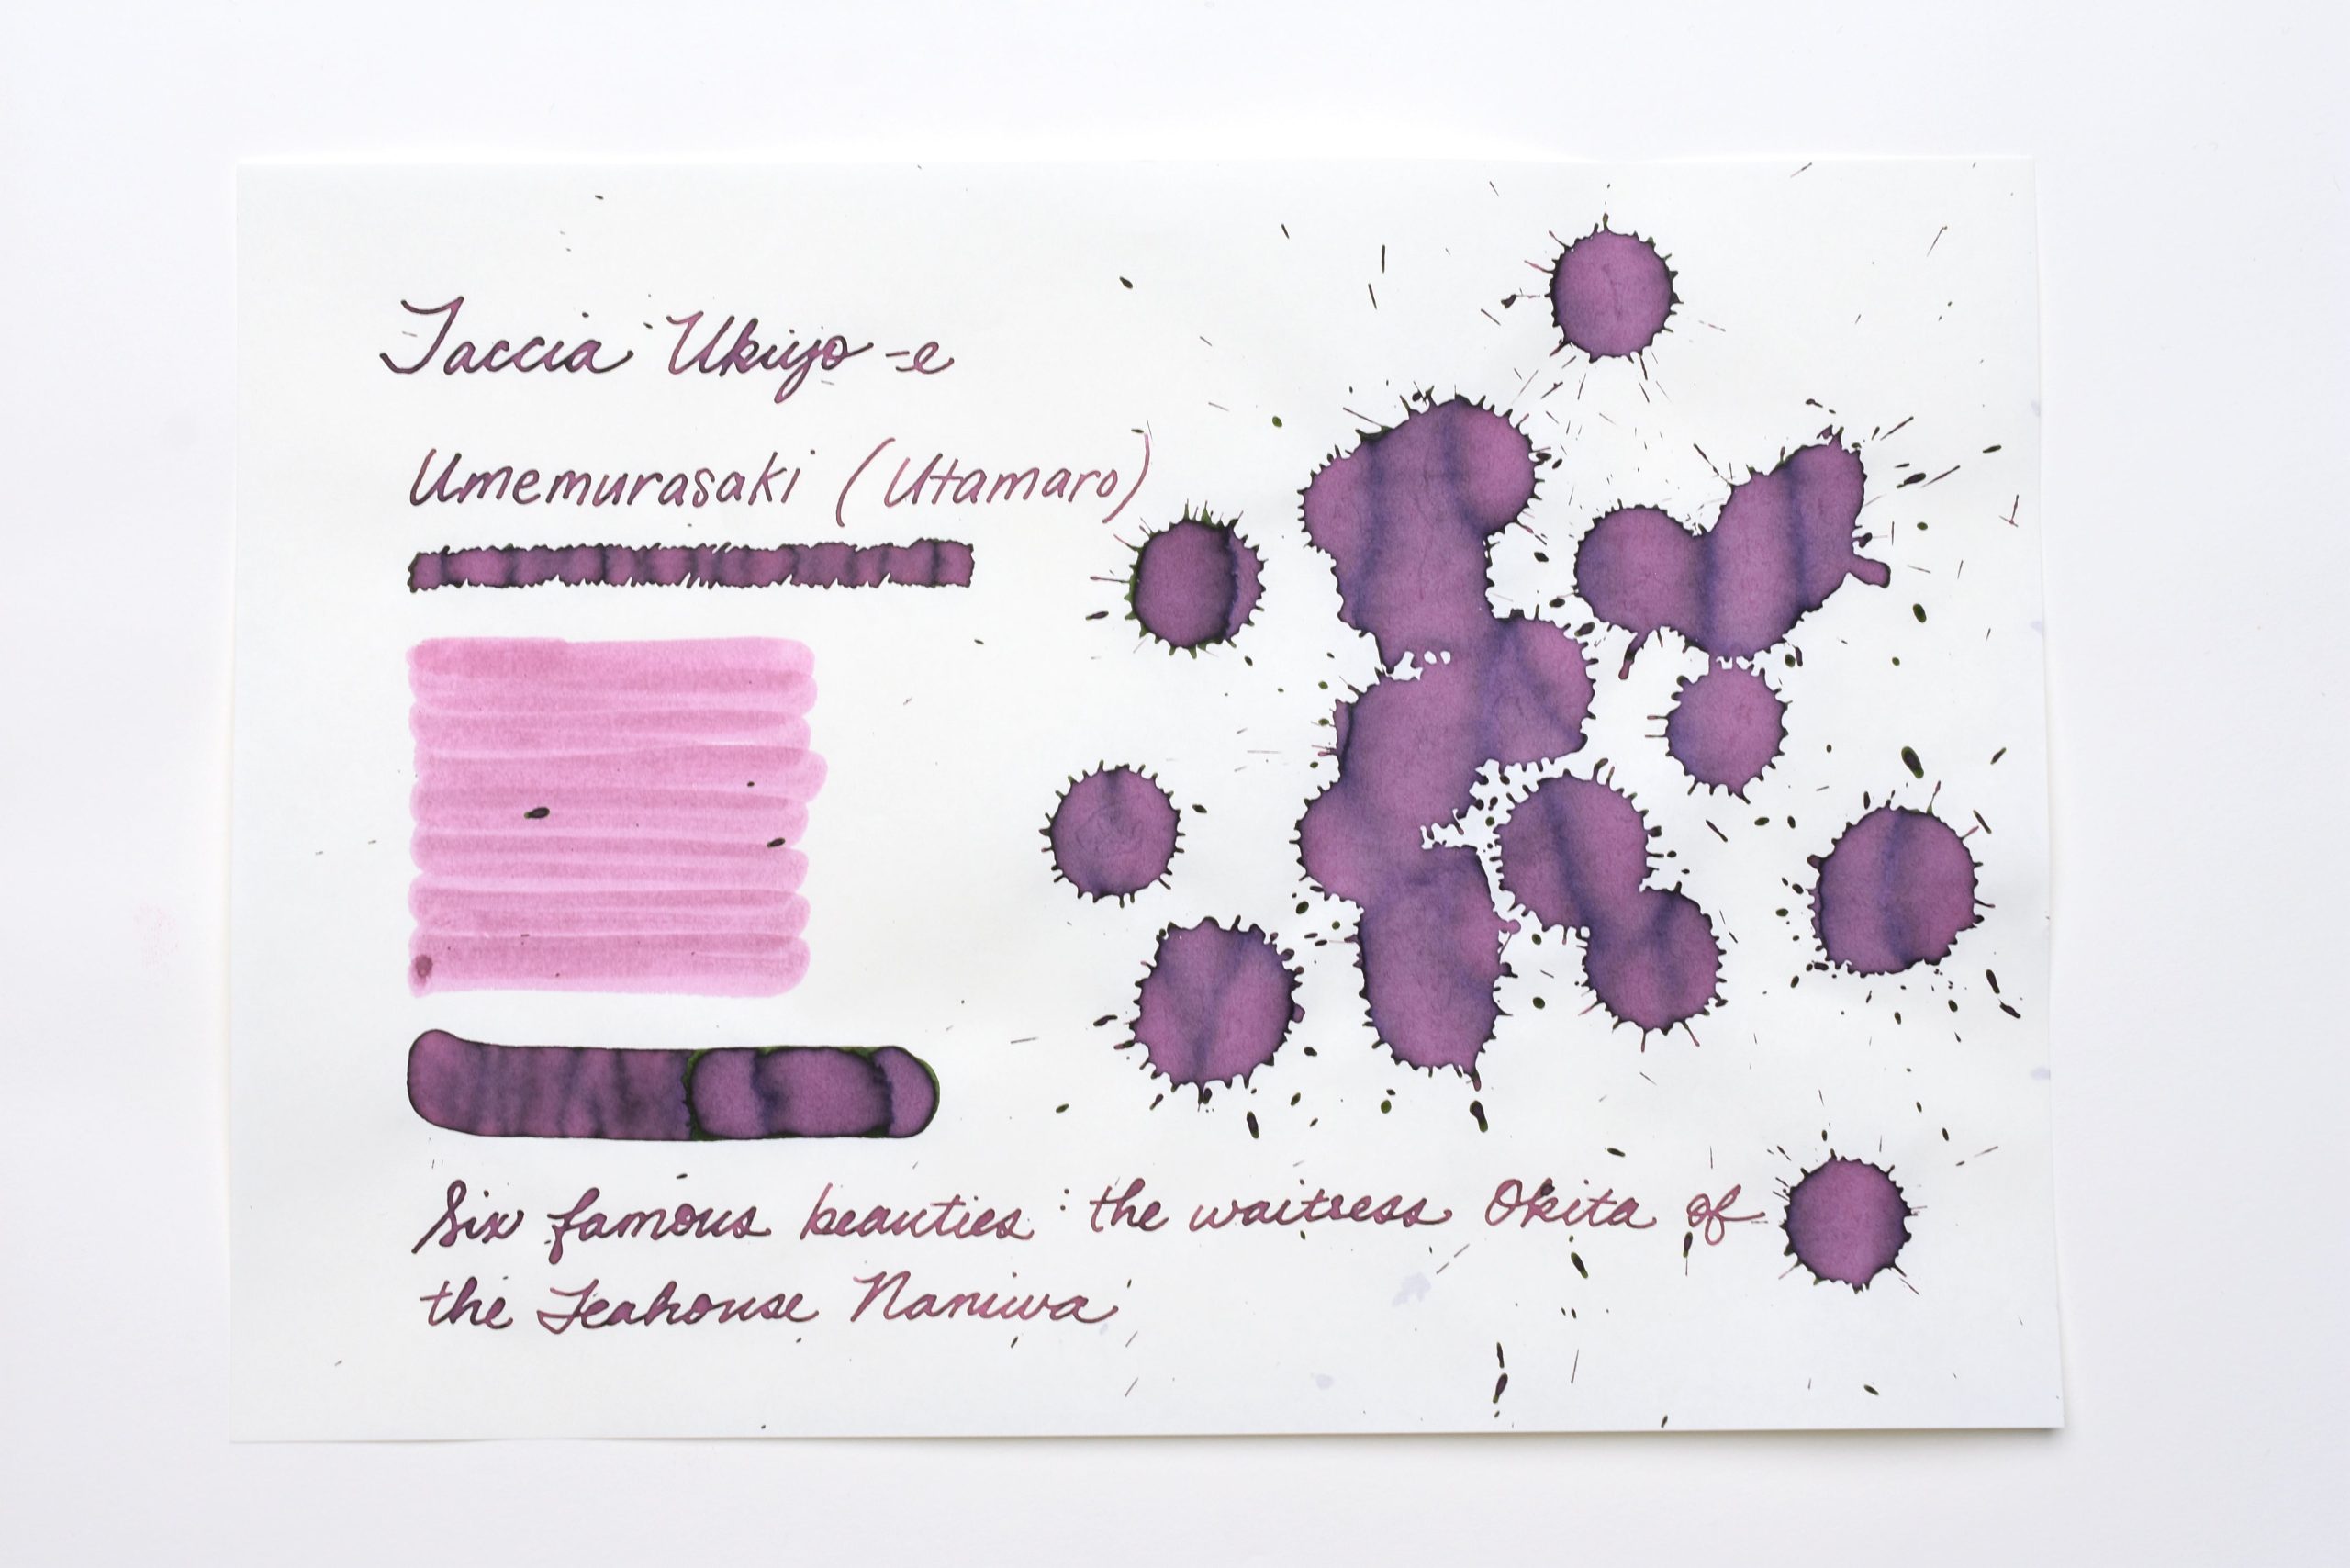 Taccia Ukiyo-e
Umemurasaki (Utamaro)
Six famous beauties: the waitress Okita of
the Teahouse Naniwa